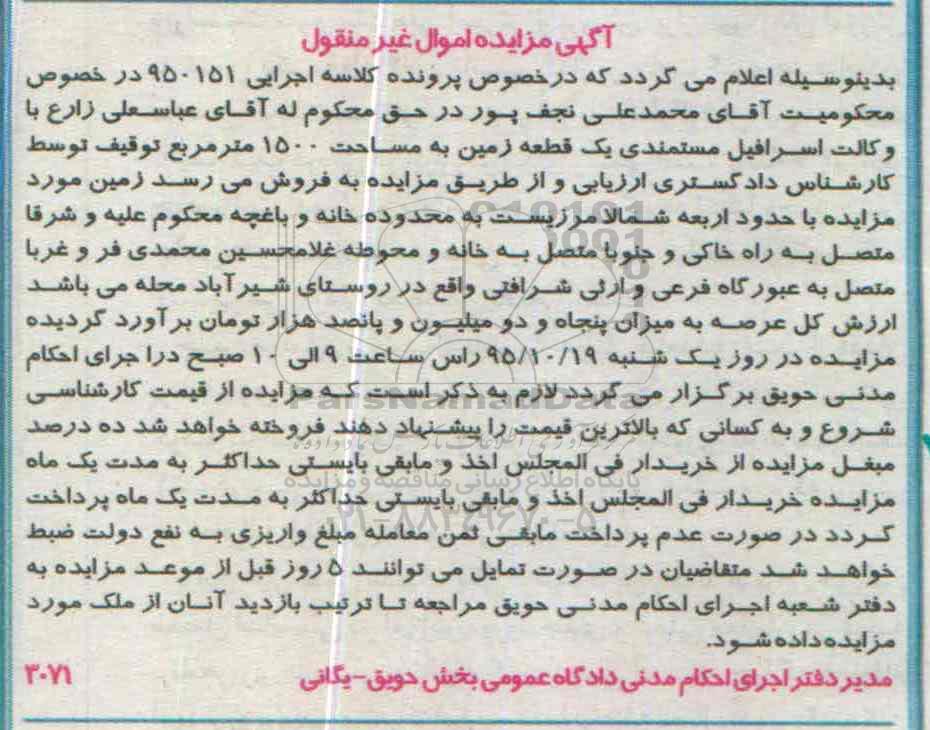 آگهی مزایده اموال غیر منقول
بدینوسیله اعلام می گردد که درخصوص پرونده کلاسه اجرایی ۹۵۰۱۵۱ در خصوص
محکومیت آقای محمدعلی نجف پور در حق محکوم له آقای عباسعلی زارع با
وکالت اسرافیل مستمندی یک قطعه زمین به مساحت ۱۵۰۰ مترمربع توقیف توسط
کارشناس دادگستری ارزیابی و از طریق مزایده به فروش می رسد زمین مورد
مزایده با حدود اربعه شمالا مرزیست به محدوده خانه و باغچه محکوم علیه و شرقا
متصل به راه خاکی و جنوبا متصل به خانه و محوطه غلامحسین محمدی فر و غربا
متصل به عبورگاه فرعی و ارثی شرافتی واقع در روستای شیرآباد محله می باشد
ارزش کل عرصه به میزان پنجاه و دو میلیون و پانصد هزار تومان برآورد گردیده
مزایده در روز یک شنبه ۹۵/۱۰/۱۹ راس ساعت ۹ الی ۱۰ صبح درا جرای احکام
مدنی حویق برگزار می گردد لازم به ذکر است که مزایده از قیمت کارشناسی
شروع و به کسانی که بالاترین قیمت را پیشنهاد دهند فروخته خواهد شد ده درصد
مبغل مزایده از خریدار فی المجلس اخذ و مابقی بایستی حداکثر به مدت یک ماه
مزایده خریدار فی المجلس اخذ و مابقی بایستی حداکثر به مدت یک ماه پرداخت
گردد در صورت عدم پرداخت مابقی ثمن معامله مبلغ واریزی به نفع دولت ضبط
خواهد شد متقاضیان در صورت تمایل می توانند ۵ روز قبل از موعد مزایده به
دفتر شعبه اجرای احکام مدنی حویق مراجعه تا ترتیب بازدید آنان از ملک مورد
مزایده داده شود.
مدیر دفتر اجرای احکام مدنی دادگاه عمومی بخش حویق-یگانی ۳۰۷۱
ParsNamadData
پایگاه اطلاع رسانی مناقصه و مزایده
۰۲۱-۸۸۳۴۹۶۷۰-۵